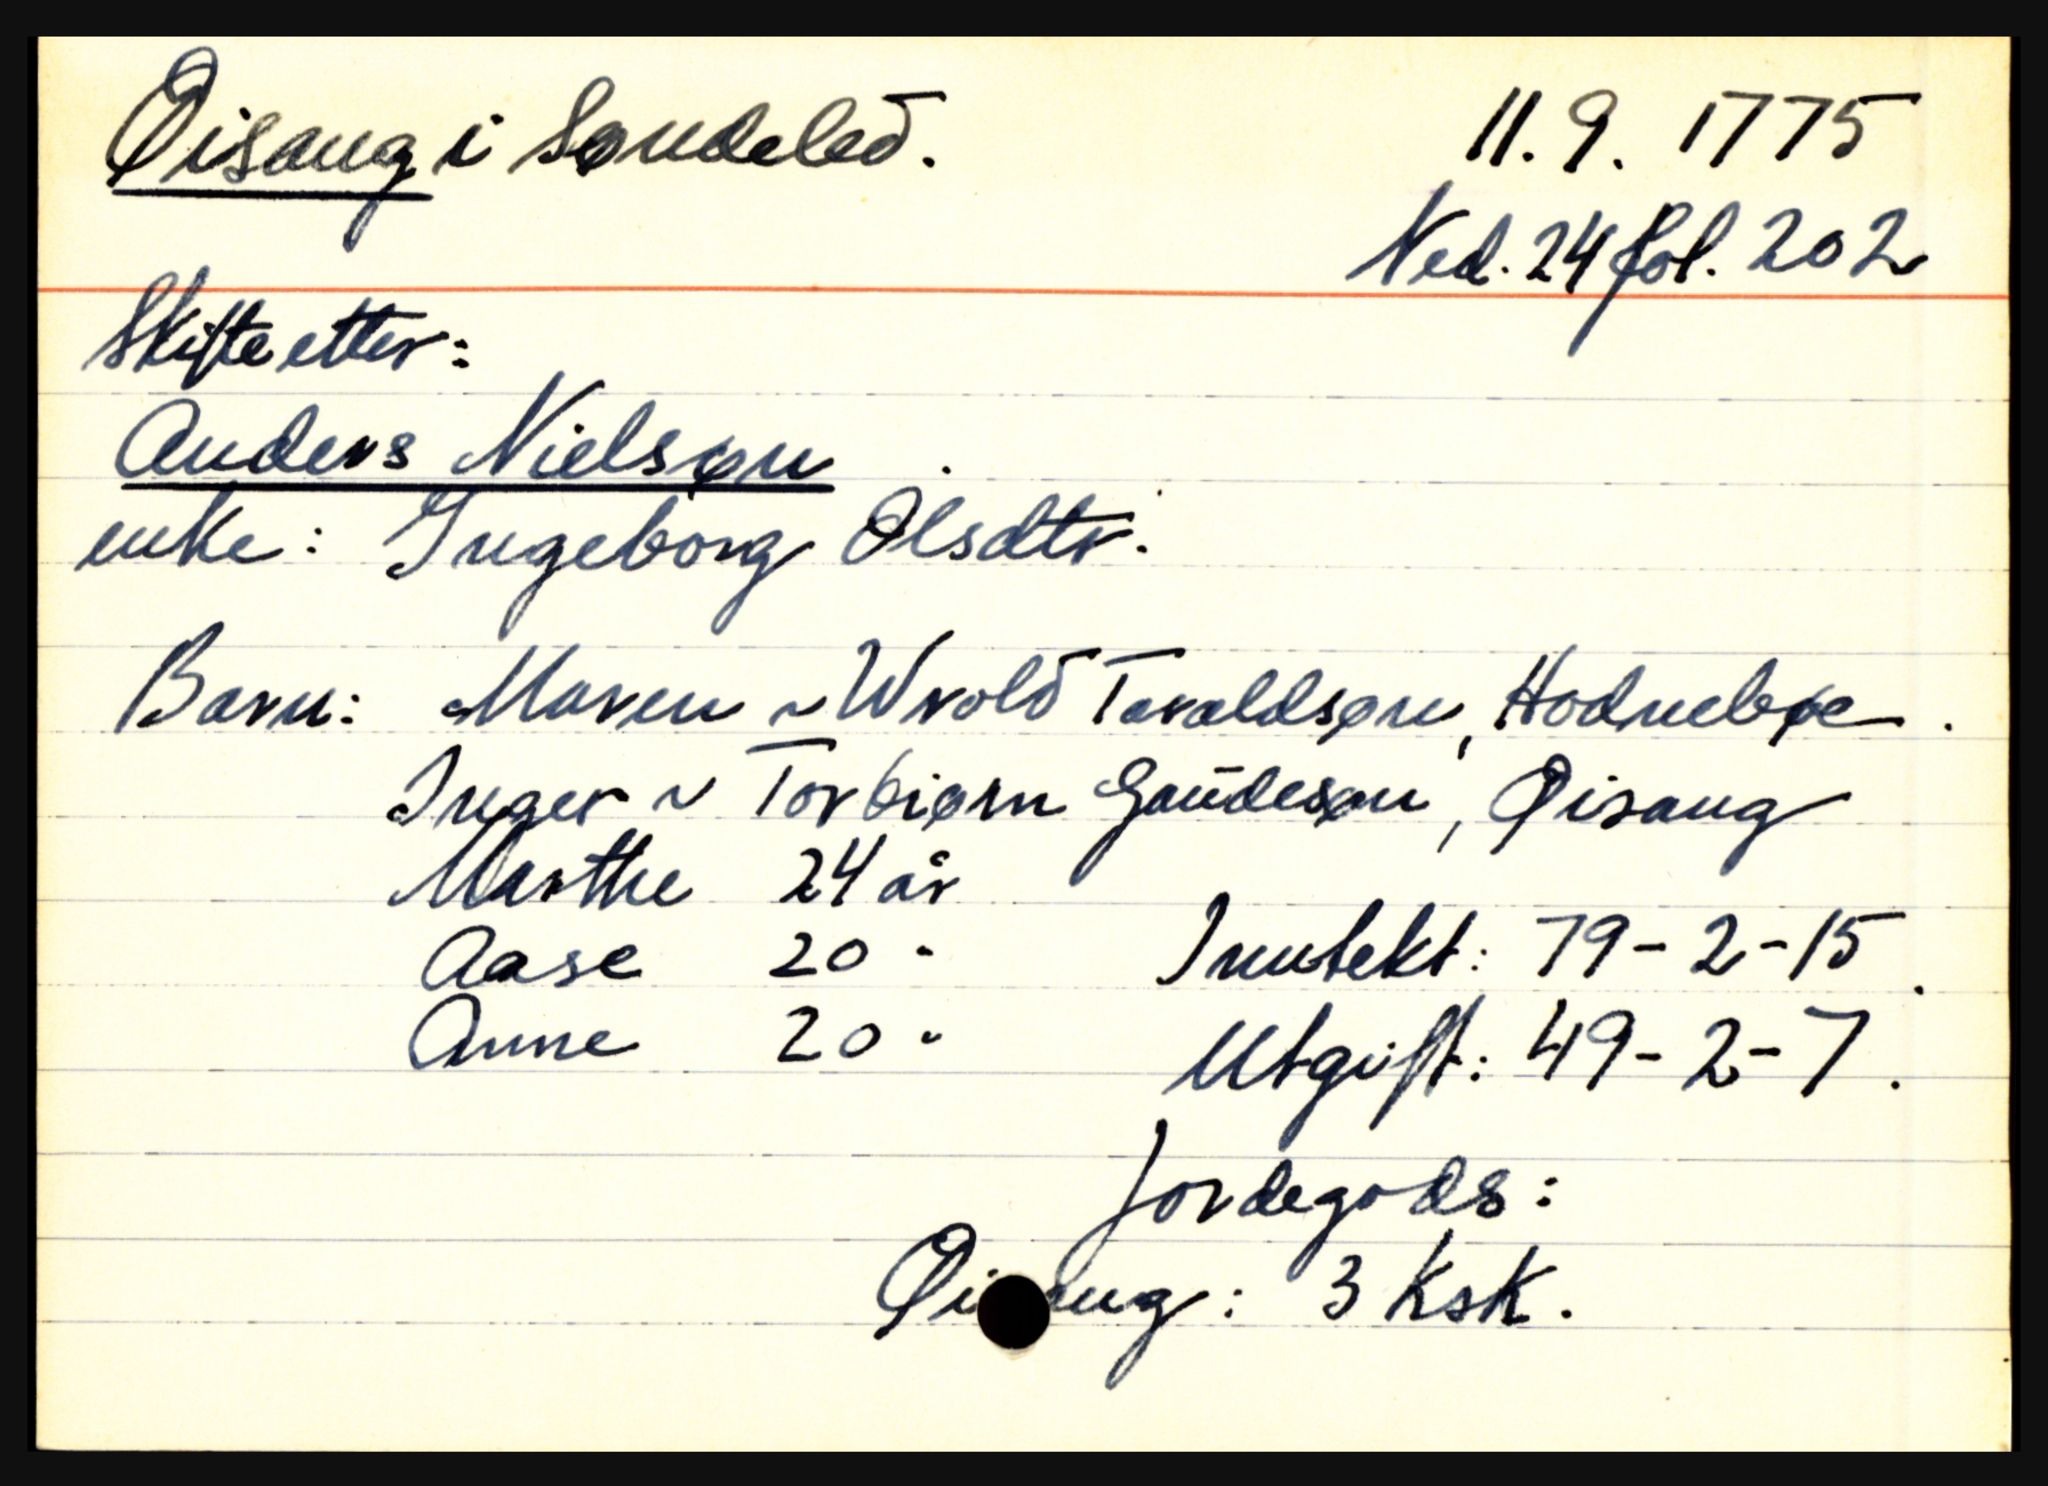 Øisang i Søndeled. 11.9. 1775
Ned. 24 fol. 202
Skifte etter:
Anders Nielsøn
enke: Ingeborg Olsdtr.
Barn: Maren ~ Wrold Taraldsøn, Hodnebøe.
Inger ~ Torbiørn Gaŭdesøn, Øisang
Marthe 24 år
Aase 20 " Inntekt: 79-2-15.
Anne 20 " Utgift: 49-2-7.
Jordegods:
Øi ang: 3 Ksk.